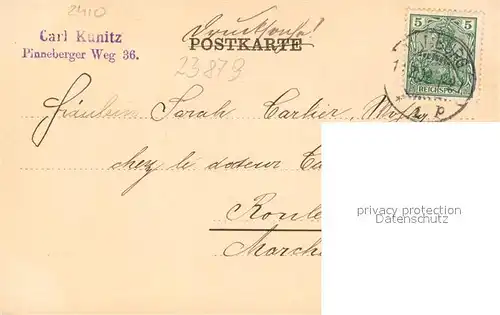 2410
Carl Kunitz
Pinneberger Weg 36.
Drucksache!
POSTKARTE
23879
5 5
REICHSPOST
1 P
Fräulein Sarah Cartier,
chez le docteur
privacy protection
Datenschutz